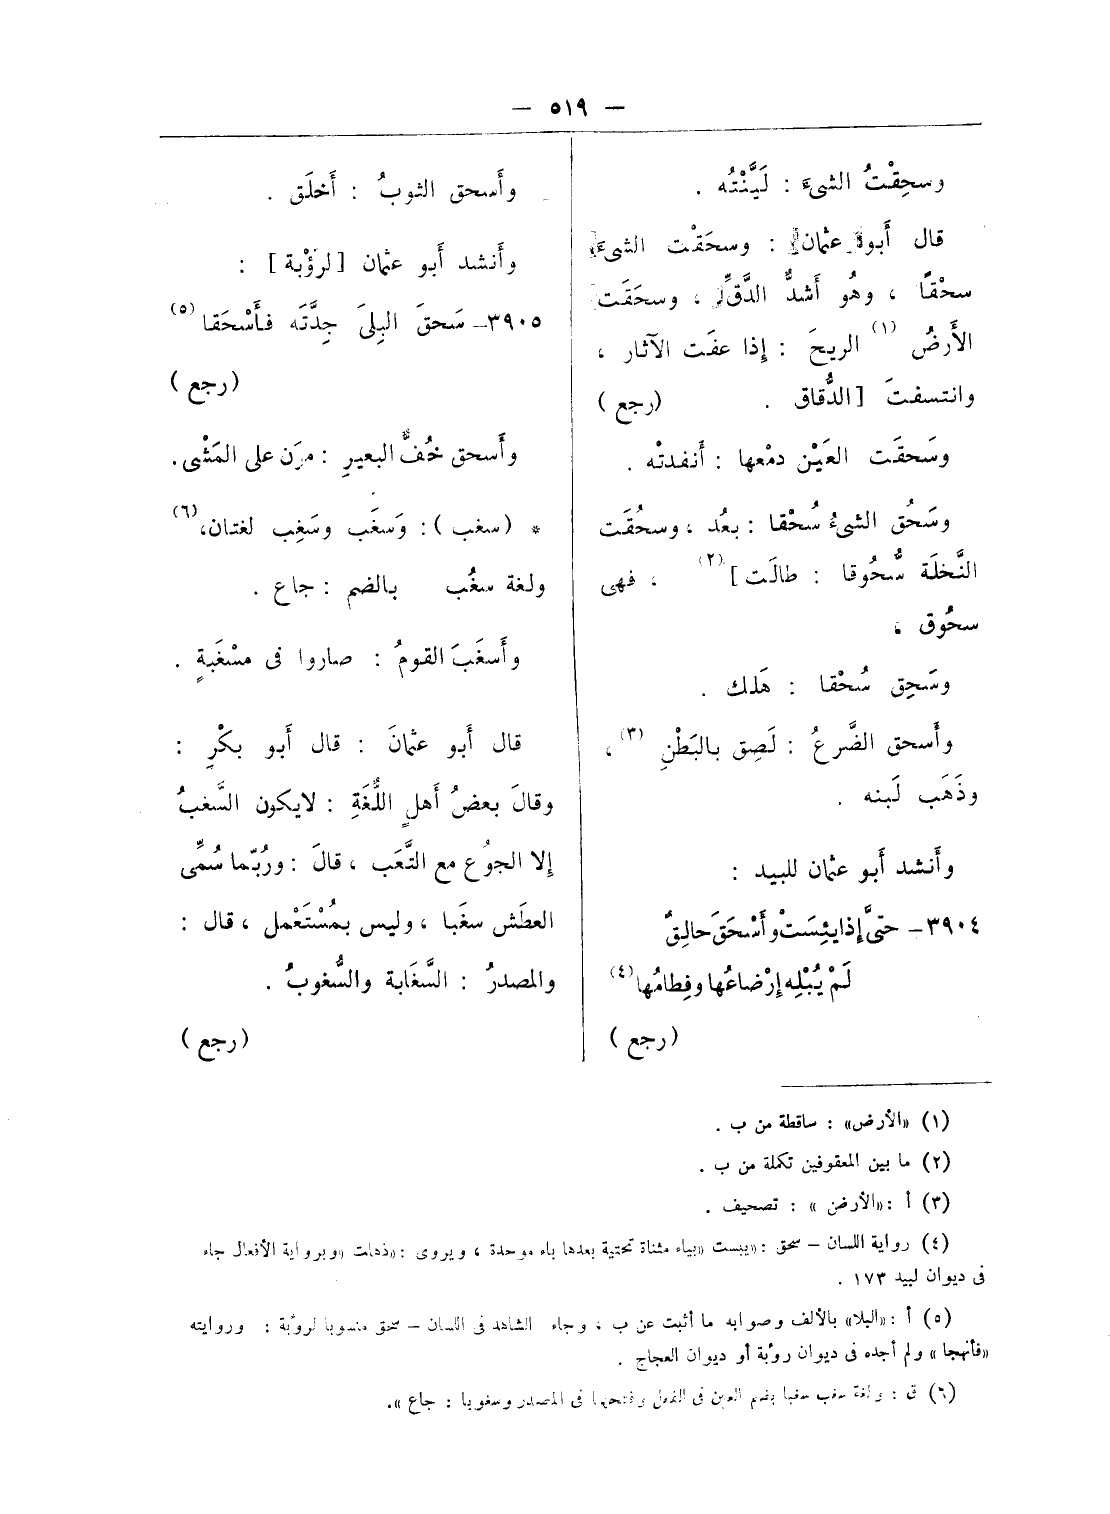 — ٥١٩ —
وسحِقْتُ الشىءَ : لَيَّنْتُه .
قال أَبو عثمان : وسحَقْت الشىءَ
سحْقًا ، وهُو أَشدُّ الدَّقِّ ، وسحَقَت
الأَرضُ (١) الريحَ : إذا عفَت الآثار ،
وانتسفتَ [ الدُّقاق . (رجع )
وسَحقَت العَيْن دمْعها : أَنفدتْه .
وسَحُق الشىءُ سُحْقا : بعُد ، وسحُقَت
النَّخلَة سُّحُوقا : طالَت ] (٢) ، فهى
سحُوق ،
وسَحِق سُحْقا : هَلك .
وأَسحق الضَّرعُ : لَصِق بالبَطْنِ (٣) ،
وذَهَب لَبنه .
وأَنشد أَبو عثمان للبيد :
٣٩٠٤ – حتىَّ إذا يئِسَتْ وأَسْحَقَ حالِقٌ
لَمْ يُبْلِه إرْضاعُها وفِطامُها (٤)
(رجع )
وأَسحق الثوبُ : أَخلَق .
وأَنشد أَبو عثمان [ لرؤْبة ] :
٣٩٠٥ – سَحقَ البِلىَ جِدَّتَه فأَسْحَقا (٥)
(رجع )
وأَسحق خُفُّ البعيرِ : مرَن على المَشْى.
* (سغب ) : وَسغَب وسَغِب لغتان، (٦)
ولغة سغُب بالضم : جاع .
وأَسغَبَ القومُ : صاروا فى مسْغَبةٍ .
قال أَبو عثمانَ : قال أَبو بكْرٍ :
وقالَ بعضُ أَهلِ اللُّغَةِ : لايكون السَّغبُ
إلا الجوُع مع التَّعَب ، قالَ : ورُبّما سُمِّى
العطَش سغَبا ، وليس بمُسْتَعْمل ، قال :
والمصدرُ : السَّغَابة والسُّغوبُ .
(رجع )
(١) «الأرض» : ساقطة من ب .
(٢) ما بين المعقوفين تكملة من ب .
(٣) أ : «الأرض » : تصحيف .
(٤) رواية اللسان – سحق : «يبست «بياء مثناة تحتية بعدها باء موحدة ، ويروى : «ذهلت «وبرواية الأفعال جاء
فى ديوان لبيد ١٧٣ .
(٥) أ : «البلا» بالألف وصوابه ما أثبت عن ب ، وجاء الشاهد فى اللسان – سحق منسوبا لرؤبة : وروايته
«فأنهجا » ولم أجده فى ديوان رؤبة أو ديوان العجاج .
(٦) ق : ولغة سغب سغبا بضم العين فى الفعل وفتحها فى المصدر وسغوبا : جاع ».